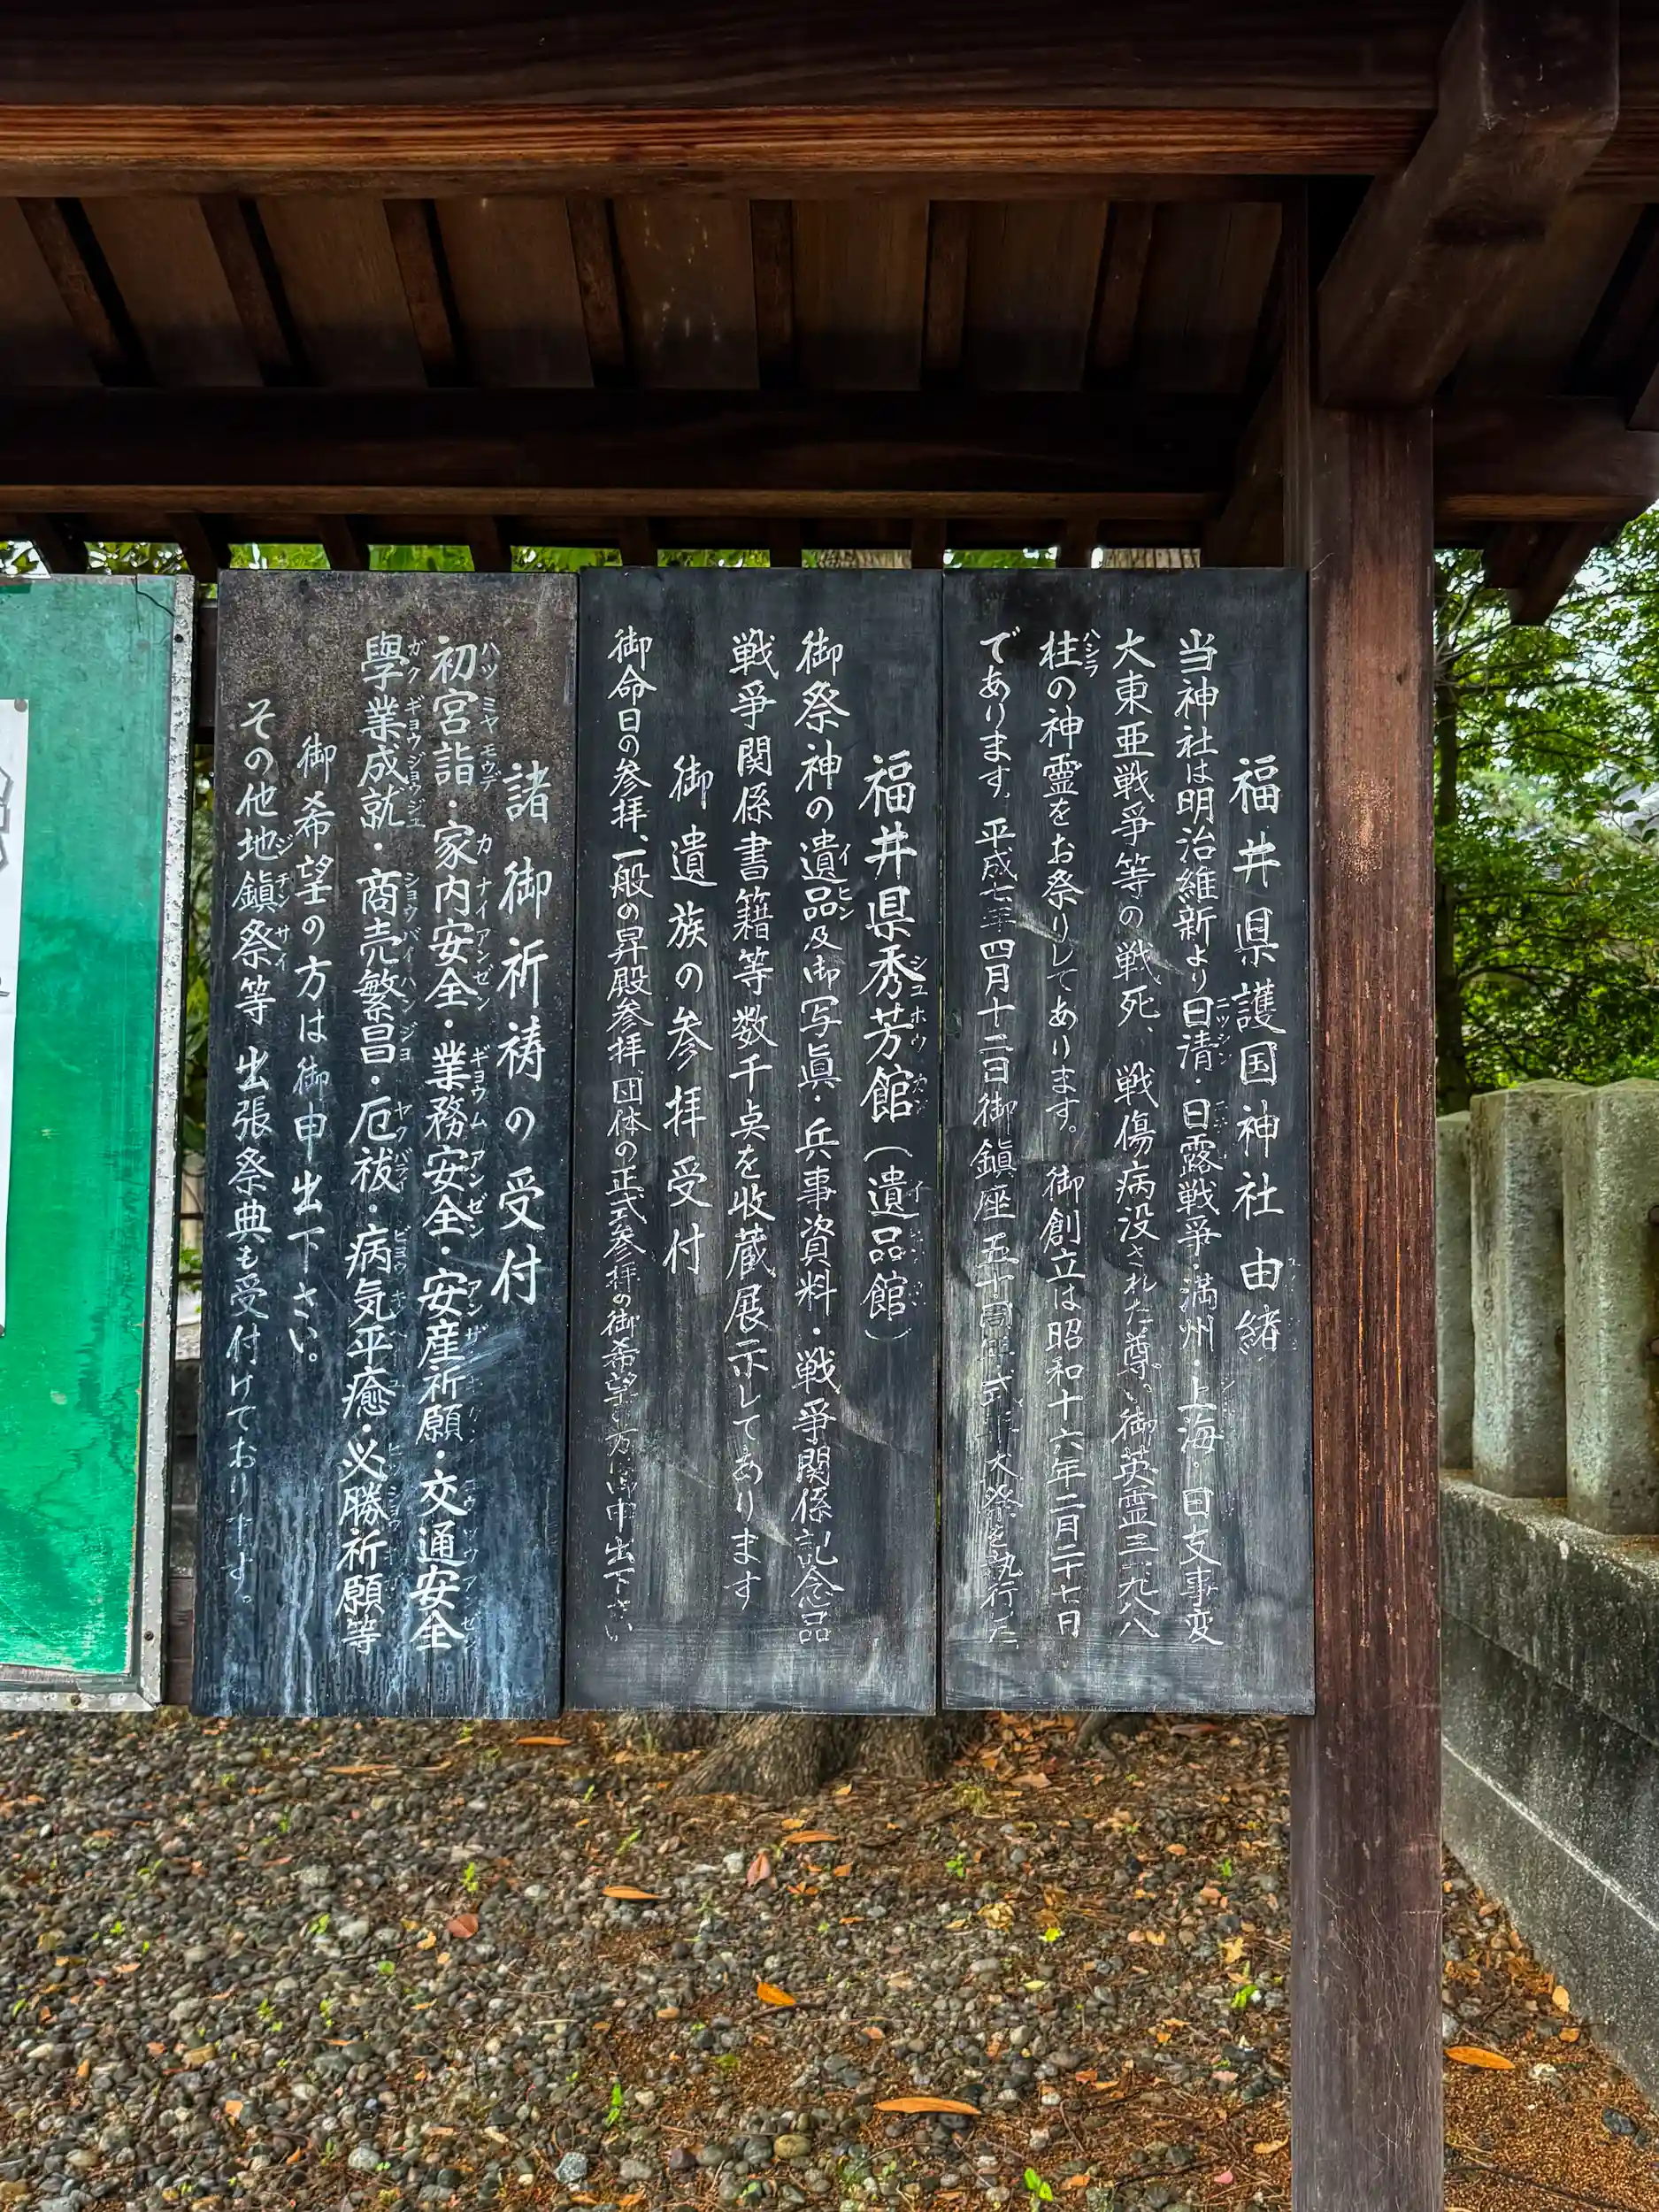 福井県護国神社由緒
当神社は明治維新より日清・日露戦争・満州・上海・日支事変
大東亜戦争等の戦死、戦傷病没された尊い御英霊三一九八八
柱の神霊をお祭りしてあります。御創立は昭和十六年二月二十七日
であります。平成七年四月十二日御鎮座五十周年式年大祭を執行した
福井県秀芳館(遺品館)
御祭神の遺品及御写眞・兵事資料・戦争関係記念品
戦争関係書籍等数千点を收蔵展示してあります
御遺族の参拝受付
御命日の参拝、一般の昇殿参拝、団体の正式参拝の御希望の方は御申出下さい
諸御祈祷の受付
初宮詣・家内安全・業務安全・安産祈願・交通安全
學業成就・商売繁昌・厄祓・病気平癒・必勝祈願等
御希望の方は御申出下さい。
その他地鎭祭等出張祭典も受付けております。